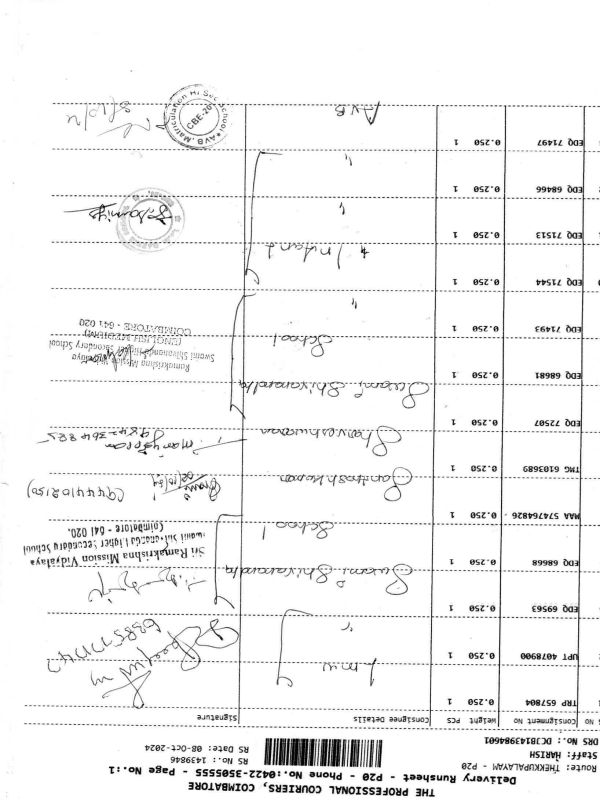 THE PROFESSIONAL COURIERS, COIMBATORE
Delivery Runsheet - P20 - Phone No.:0422-3505555 - Page No.:1
Route: THEKKUPALAYAM - P20
Staff: HARISH
DRS No.: DCJB143984601
RS No.: 1439846
RS Date: 08-Oct-2024
No Consignment No Weight PCS Consignee Details Signature
TRP 657804 0.250 1
UPT 4078900 0.250 1
EDQ 69563 0.250 1 Swami Shivananda
EDQ 68668 0.250 1 School
Sri Ramakrishna Mission Vidyalaya
Coimbatore - 641 020.
MAA 574764826 0.250 1 Santoshkumar
TMG 6103689 0.250 1
EDQ 72507 0.250 1 Swami Shivananda
EDQ 68681 0.250 1 School
EDQ 71493 0.250 1 "
Ramakrishna Mission Vidyalaya
Swami Shivananda Higher Secondary School
(ENGLISH MEDIUM)
COIMBATORE - 641 020
EDQ 71544 0.250 1
EDQ 71513 0.250 1 "
EDQ 68466 0.250 1 "
EDQ 71497 0.250 1 AVB
AVB. Matriculation Hr Sec School
CBE-20